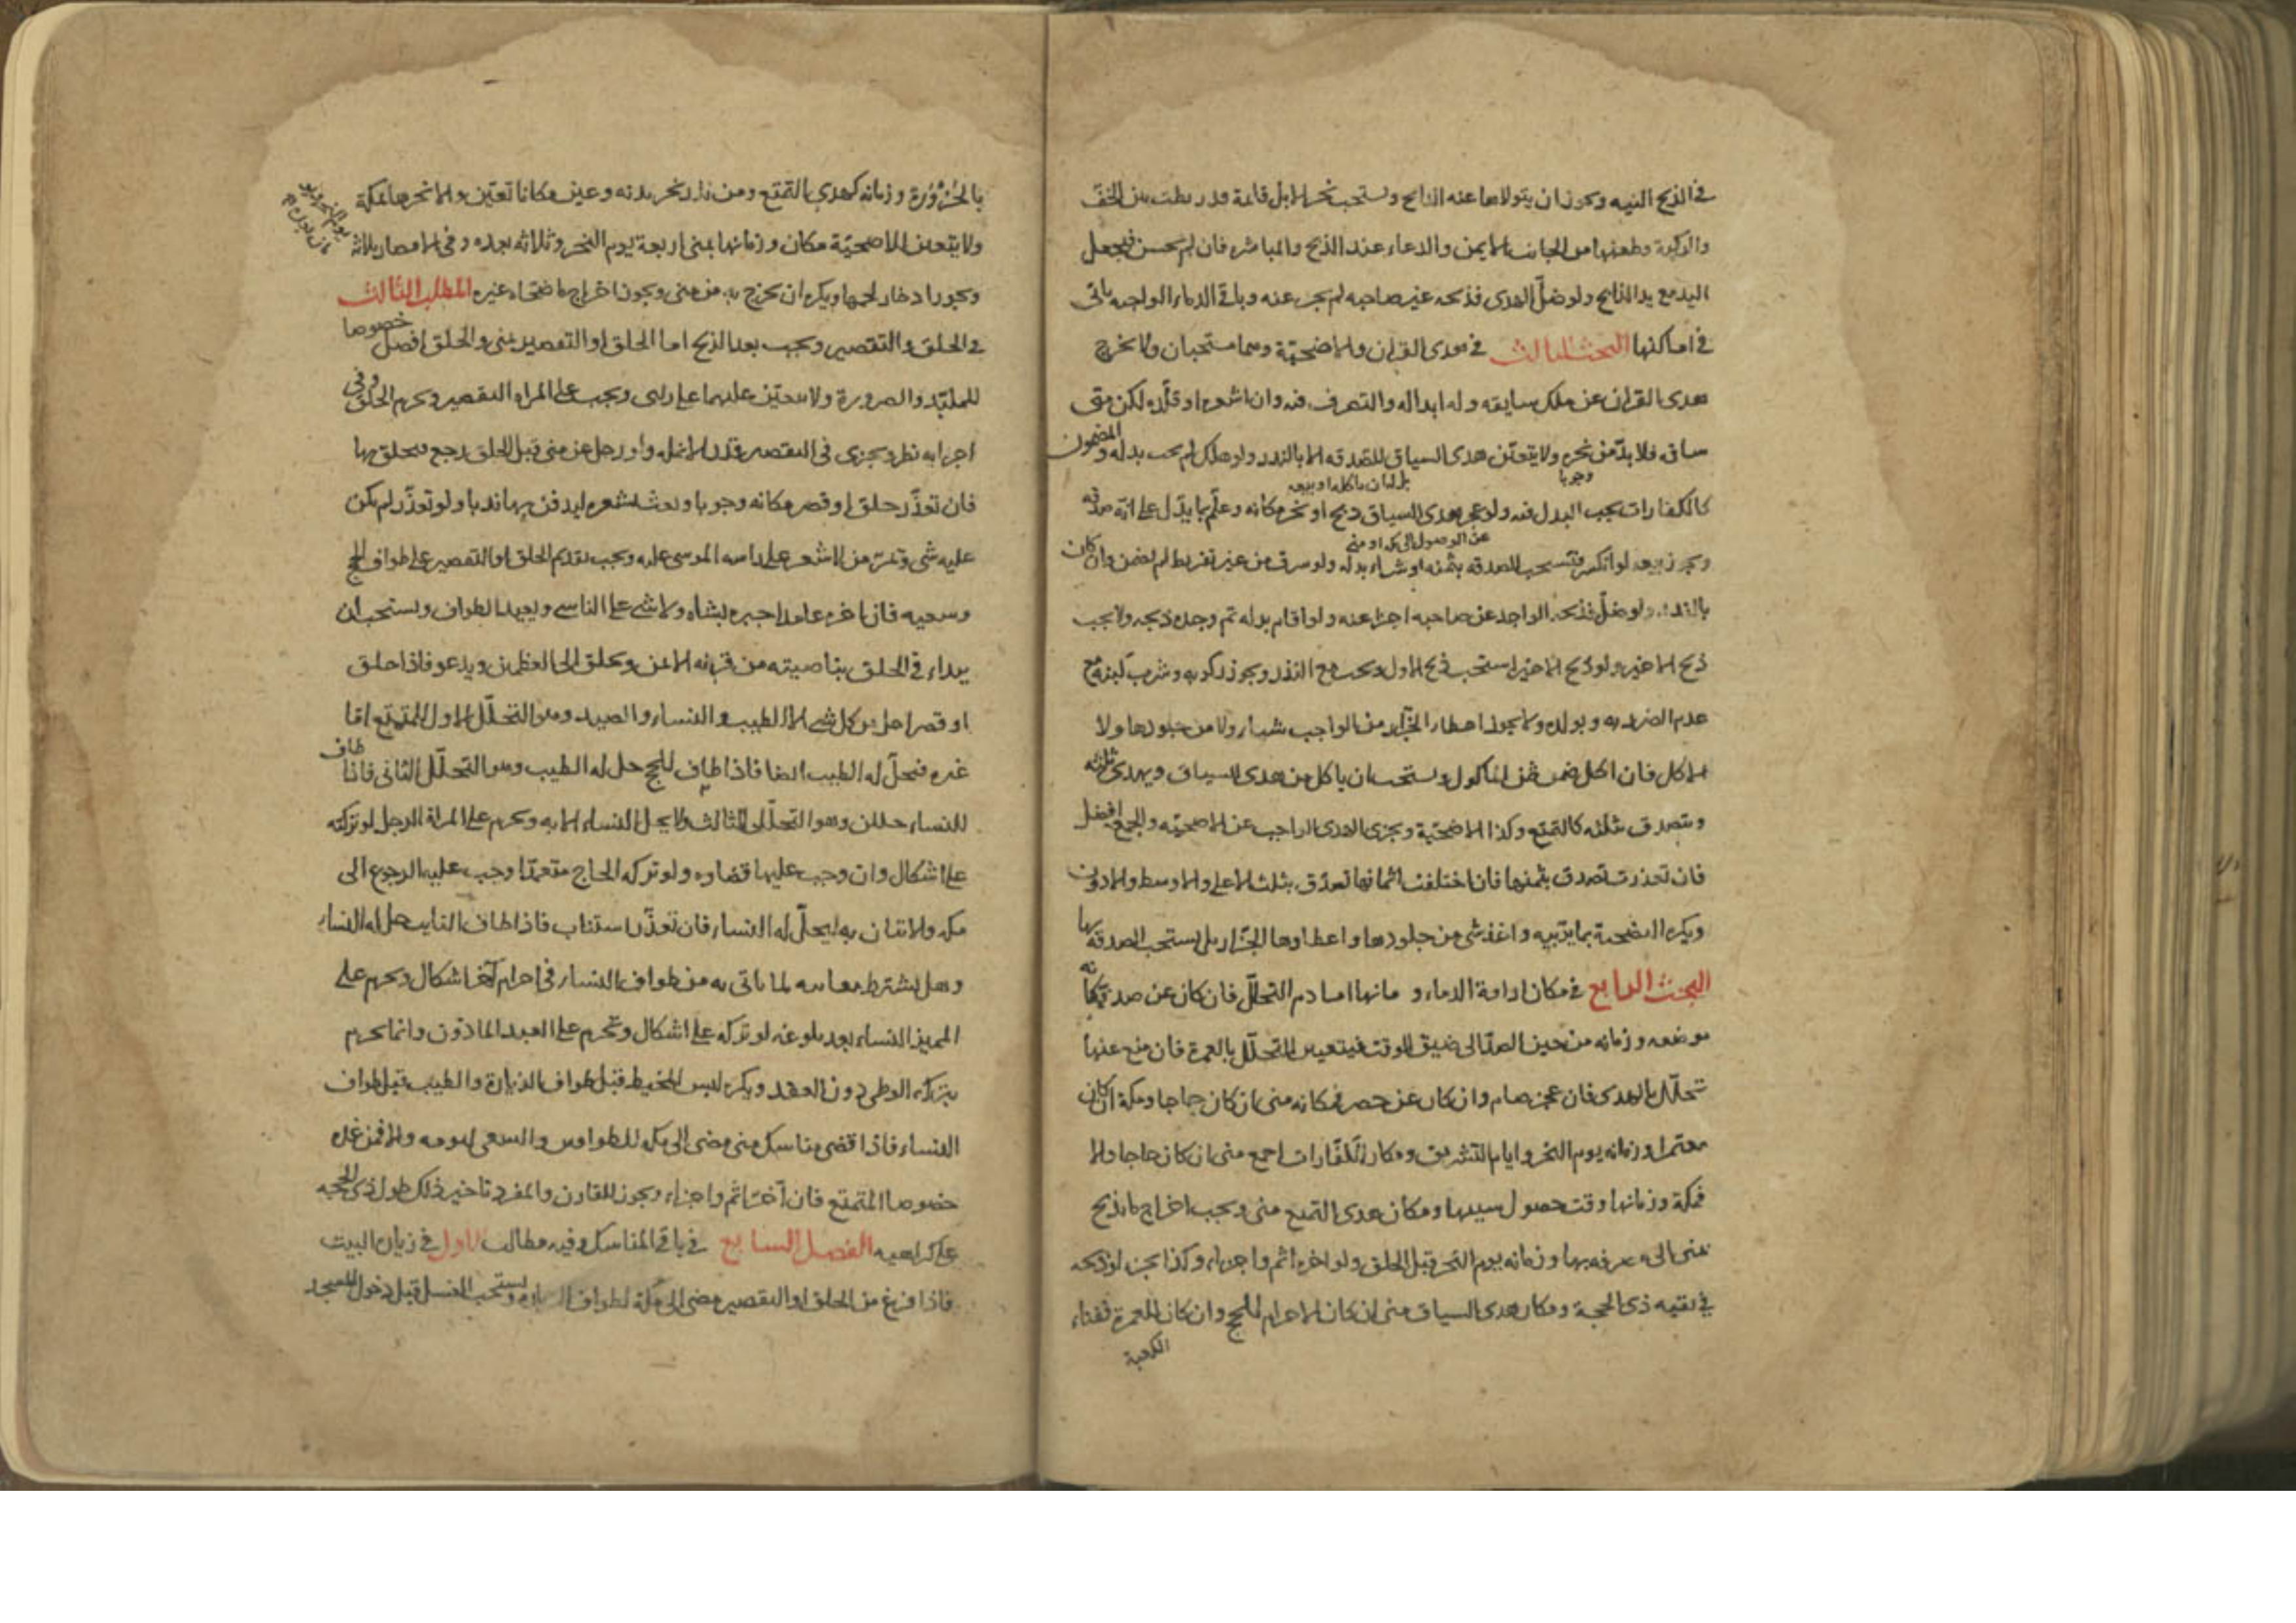 في الذبح النية ويجوز ان يتولاها عنه الذابح ويستحب نحر الابل قائمة قد ربطت بين الخف
والركبة وطعنها من الجانب الايمن والدعاء عند الذبح والمباشرة فان لم يحسن فيجعل
اليد مع يد الذابح ولو ضلّ الهدى فذبحه غير صاحبه لم يجز عنه وباقي الدماء الواجبة ياتى
في اماكنها البحث الثالث في هدى القران والاضحيّة وهما مستحبان ولا يخرج
هدى القران عن ملك سايقه وله ابداله والتصرف فيه وان اشعره او قلّده لكن متى
ساقه فلا بدّ من نحره ولا يتعيّن هدى السياق للصدقه الا بالنذر ولو هلك لم يجب بدله والمضمون
وجوبا
كالكفارات يجب البدل فيه ولو عجز هدى السياق ذبح او نحر مكانه وعلّم بما يدّل على انّه صدقه
عن الوصول الى مكه او منى
ويجوز بيعه لو انكسر فتستحب الصدقه بثمنه او شراء بدله ولو سرق من غير تفريط لم يضمن وان كان
بالنذر ولو ضلّ فذبحه الواجد عن صاحبه اجزا عنه ولو اقام بدله ثم وجده ذبحه ولا يجب
ذبح الاخير ولو ذبح الاخير استحب ذبح الاول ويجب مع النذر ويجوز ركوبه وشرب لبنه مع
عدم الضرر به وبولده ولا يجوز اعطاء الجزّار من الواجب شيا ولا من جلودها ولا
الاكل فان اكل ضمن ثمن الماكول ويستحب ان ياكل من هدى السياق ويهدى ثلثه
ويتصدق بثلثه كالتمتع وكذا الاضحيّة ويجزى الهدى الواجب عن الاضحيّه والجمع افضل
فان تعذرت تصدق بثمنها فان اختلفت اثمانها تصدّق بثلث الاعلى والاوسط والادون
ويكره التضحية بما يربيه واخذ شى من جلودها واعطاوها الجزّار بل يستحب الصدقه بها
البحث الرابع في مكان اراقة الدماء و مانها اما دم التحلّل فان كان عن صد فمكانه
موضعه وزمانه من حين الصدّ الى ضيق الوقت فيتعين التحلّل بالعمرة فان منع عنها
تحلّل بالهدى فان عجز صام وان كان عن حصر فمكانه منى ان كان حاجا ومكة ان كان
معتمرا وزمانه يوم النحر وايام التشريق ومكان الكفّارات اجمع منى ان كان حاجا والا
فمكة وزمانها وقت حصول سببها ومكان هدى التمتع منى ويجب اخراج ما يذبح
بمنى الى مصرفه بها وزمانه يوم النحر قبل الحلق ولو اخره اثم واجزاء وكذا يجزى لو ذبحه
في بقيه ذى الحجة ومكان هدى السياق منى ان كان الاحرام للحج وان كان للعمرة ففناء
الكعبة
بالحَزْوَرَة وزمانه كهدي التمتع ومن نذر نحر بدنه وعين مكانا تعيّن والا نحرها بمكة
ولا يتعين للاضحيّة مكان وزمانها بمنى اربعة يوم النحر وثلاثه بعده وفى الامصار ثلاثه
ويجوز ادخار لحمها ويكره ان يخرج به من منى ويجوز اخراج ما ضحاه غيره المطلب الثالث
في الحلق والتقصير ويجب بعد الذبح اما الحلق او التقصير بمنى والحلق افضل خصوصا
للملبّد والصرورة ولا يتعيّن عليهما على راى ويجب على المراه التقصير ويحرم الحلق وفى
اجزايه نظر ويجزى فى التقصير قدر الانمله ولو رحل عن منى قبل الحلق رجع فحلق بها
فان تعذّر حلق او قصر مكانه وجوبا وبعث بشعره ليدفن بها ندبا ولو تعذّر لم يكن
عليه شى ويمرّ من لا شعر على راسه الموسى عليه ويجب تقديم الحلق او التقصير على طواف الحج
وسعيه فان اخره عامدا جبره بشاه ولا شى على الناسى ويعيد الطواف ويستحب ان
يبداء في الحلق بناصيته من قرنه الايمن ويحلق الى العظمين ويدعو فاذا حلق
او قصر احل من كل شى الا الطيب و النساء والصيد وهو التحلّل الاول للمتمتع امّا
غيره فيحلّ له الطيب ايضا فاذا طاف للحج حل له الطيب وهو التحلّل الثانى فاذا طاف
للنساء حللن وهو التحلّل الثالث ولا يحل النساء الا به ويحرم على المراة الرجل لو تركته
على اشكال وان وجب عليها قضاوه ولو تركه الحاج متعمدا وجب عليه الرجوع الى
مكه والاتيان به ليحلّ له النساء فان تعذّر استناب فاذا طاف النايب حل له النساء
وهل يشترط مغايرته لما ياتى به من طواف النساء فى احرام آخر اشكال ويحرم على
المميز النساء بعد بلوغه لو تركه على اشكال وتحرم على العبد الماذون وانما يحرم
بتركه الوطى دون العقد ويكره لبس المخيط قبل طواف الزيارة والطيب قبل طواف
النساء فاذا قضى مناسك منى مضى الى مكه للطوافين والسعى ليومه والا فمن غده
خصوصا المتمتع فان اخرّ اثم واجزاء ويجوز للقارن والمفرد تاخير ذلك طول ذى الحجه
على كراهيه الفصل السابع في باقي المناسك وفيه مطالب الاول في زيارة البيت
فاذا فرغ من الحلق او التقصير مضى الى مكة لطواف الزيارة ويستحب الغسل قبل دخول المسجد